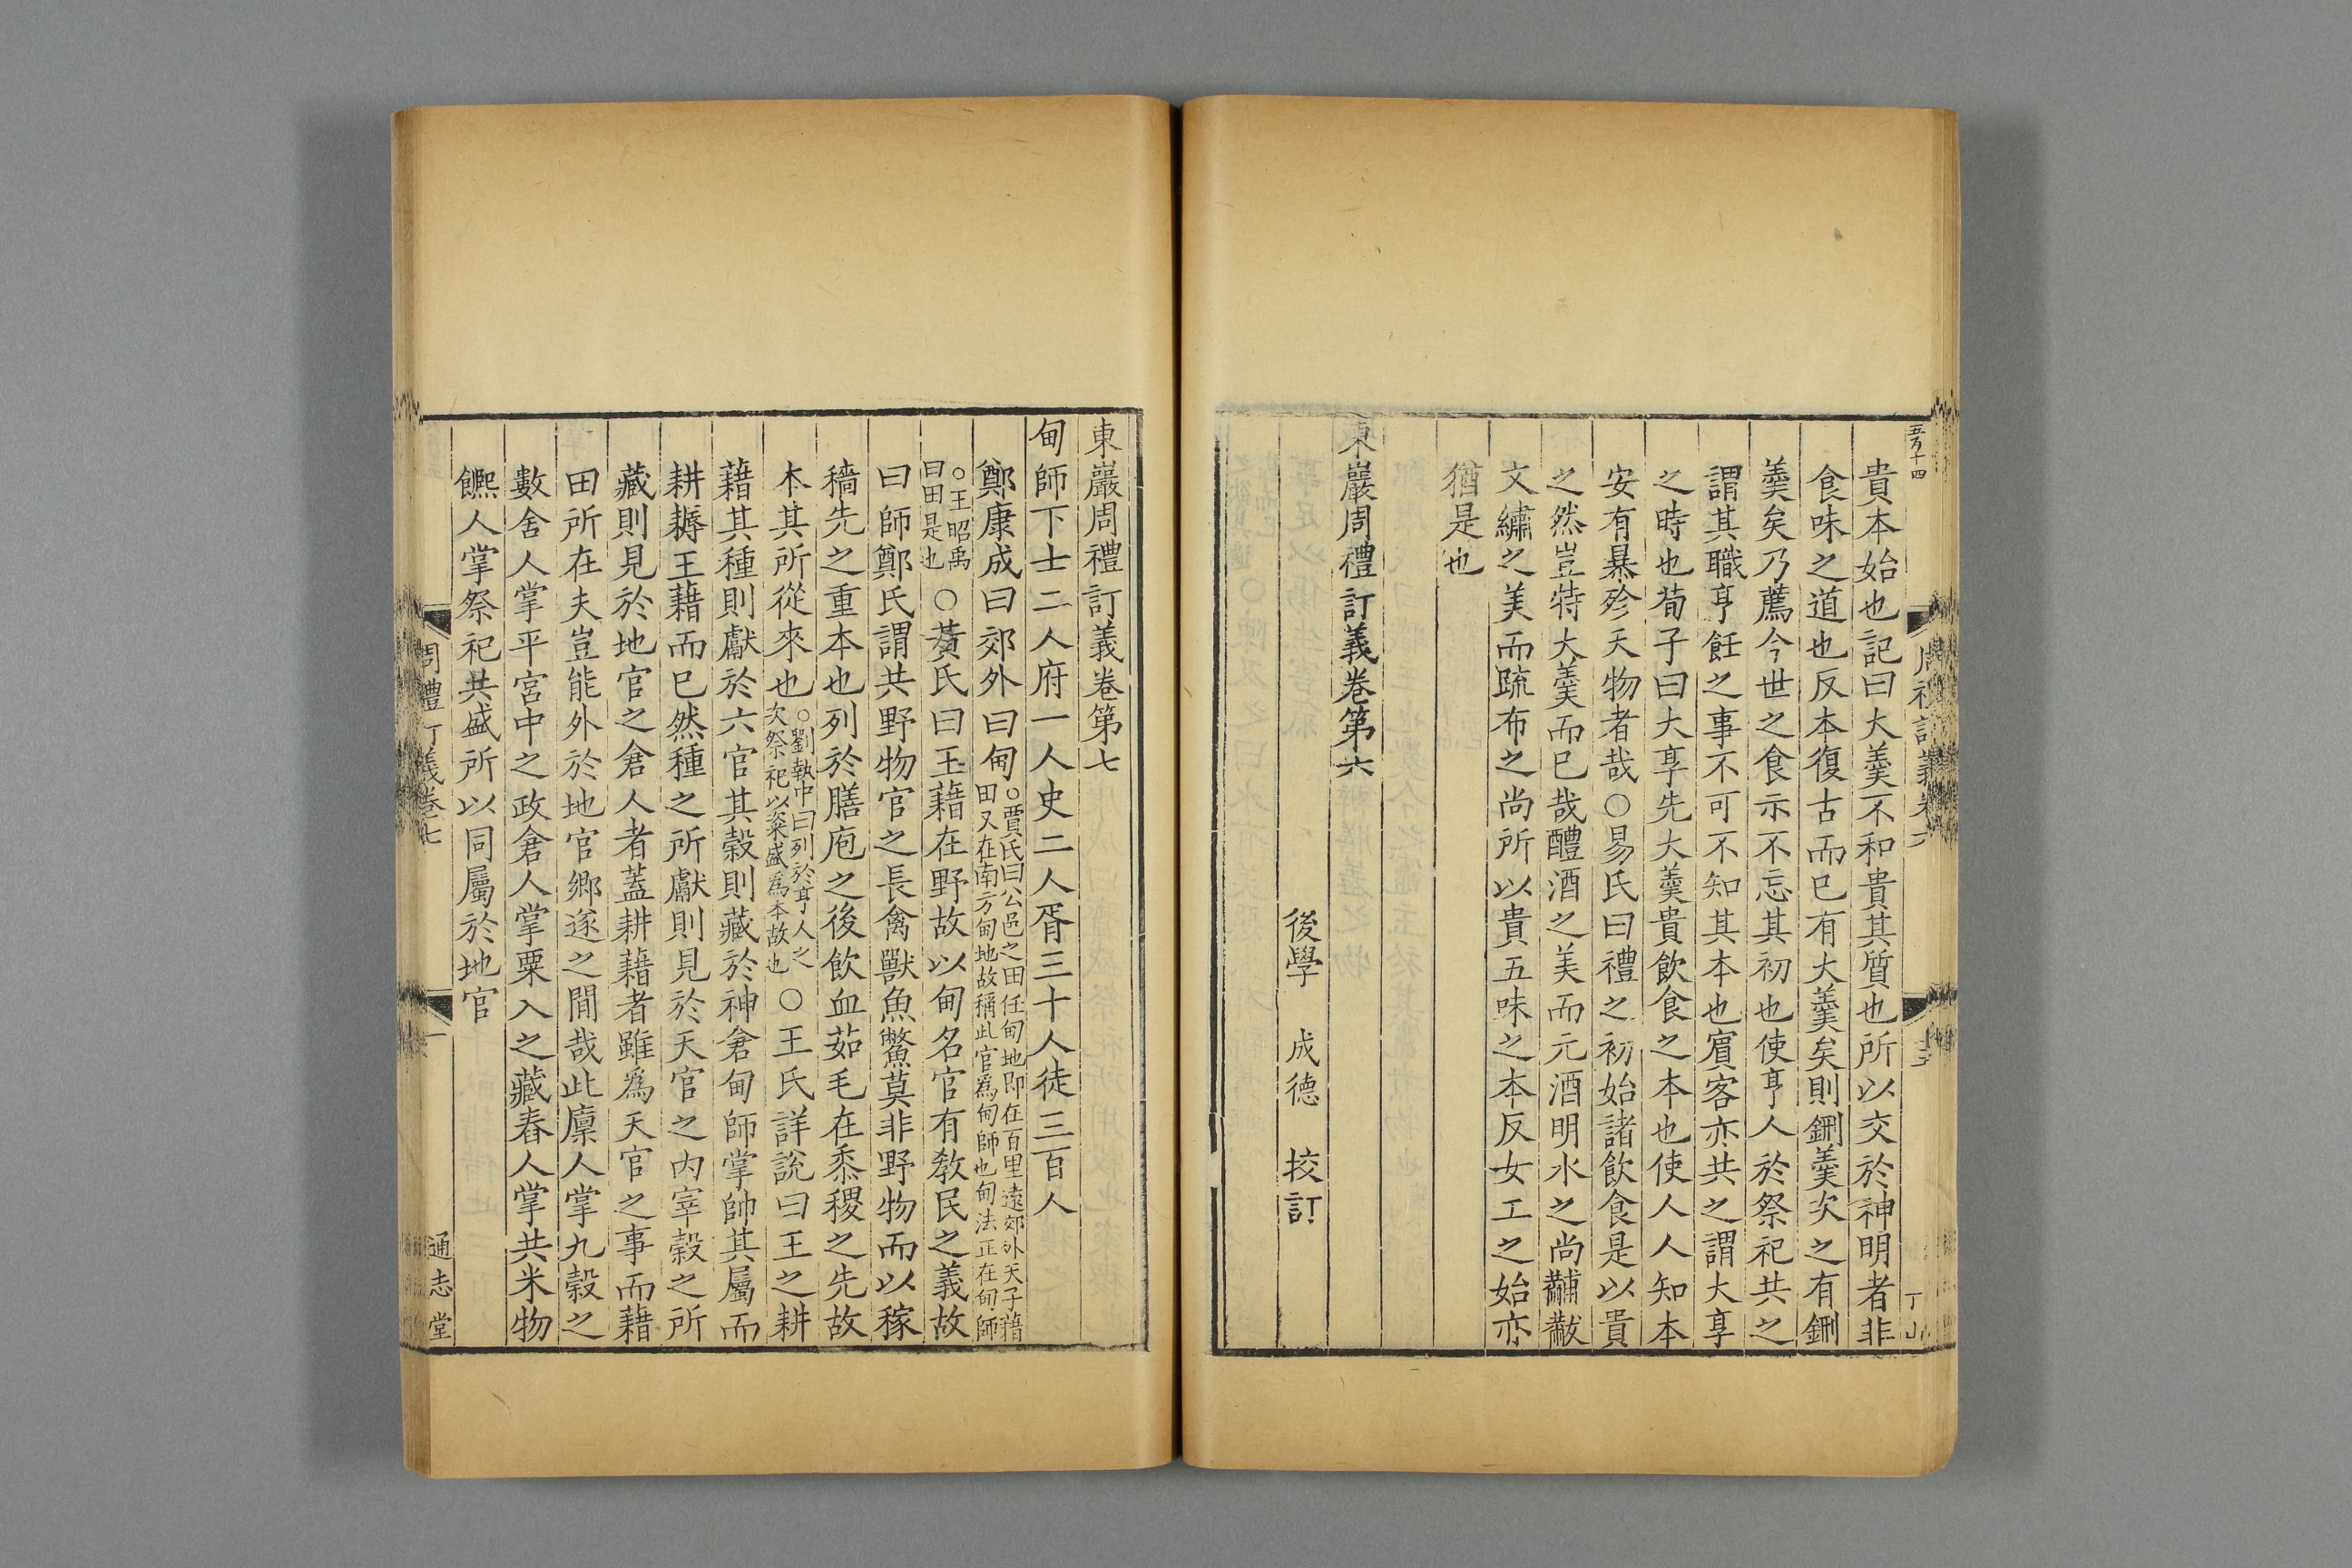 貴本始也記曰大羹不和貴其質也所以交於神明者非
食味之道也反本復古而已有大羹矣則鉶羹次之有鉶
羹矣乃薦今世之食示不忘其初也使亨人於祭祀共之
謂其職亨飪之事不可不知其本也賓客亦共之謂大享
之時也荀子曰大享先大羹貴飲食之本也使人人知本
安有暴殄天物者哉○易氏曰禮之初始諸飲食是以貴
之然豈特大羹而已哉醴酒之美而元酒明水之尚黼黻
文繡之美而疏布之尚所以貴五味之本反女工之始亦
猶是也
東巖周禮訂義卷第六
後學 成德 挍訂
東巖周禮訂義卷第七
甸師下士二人府一人史二人胥三十人徒三百人
鄭康成曰郊外曰甸○賈氏曰公邑之田任甸地即在百里遠郊外天子藉
田又在南方甸地故稱此官爲甸師也甸法正在甸師
○王昭禹
曰田是也○黃氏曰王藉在野故以甸名官有敎民之義故
曰師鄭氏謂共野物官之長禽獸魚鱉莫非野物而以稼
穡先之重本也列於膳庖之後飲血茹毛在黍稷之先故
本其所從來也○劉執中曰列於亨人之
次祭祀以粢盛爲本故也○王氏詳說曰王之耕
藉其種則獻於六宮其穀則藏於神倉甸師掌帥其屬而
耕耨王藉而已然種之所獻則見於天官之內宰穀之所
藏則見於地官之倉人者蓋耕藉者雖爲天官之事而藉
田所在夫豈能外於地官鄉遂之間哉此廩人掌九穀之
數舍人掌平宮中之政倉人掌粟入之藏舂人掌共米物
饎人掌祭祀共盛所以同屬於地官
周禮訂義卷七
一
通志堂